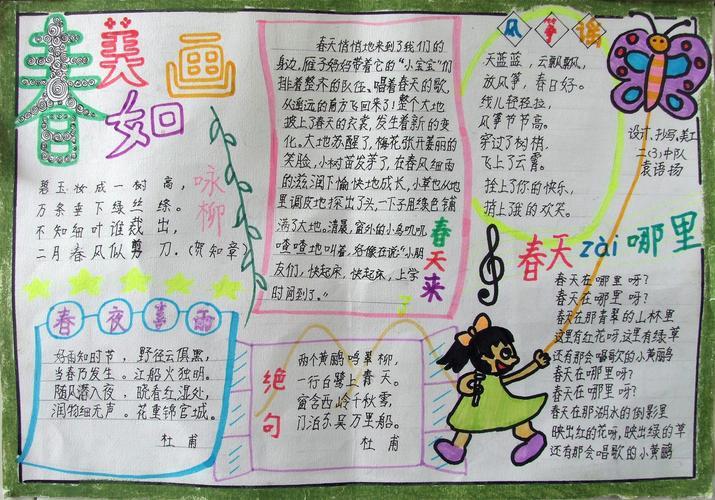 春美如画
咏柳
碧玉妆成一树高，
万条垂下绿丝绦。
不知细叶谁裁出，
二月春风似剪刀。(贺知章)
春夜喜雨
好雨知时节，野径云俱黑，
当春乃发生。江船火独明。
随风潜入夜，晓看红湿处，
润物细无声。花重锦官城。
杜甫
春天悄悄地来到了我们的
身边，雁子妈妈带着它的“小宝宝”们
排着整齐的队伍、唱着春天的歌，
从遥远的南方飞回来了！整个大地
披上了春天的衣裳，发生着新的变
化。大地苏醒了，梅花张开美丽的
笑脸，小树苗发芽了，在春风细雨
的滋润下愉快地成长，小草也从地
里调皮地探出了头，一下子用绿色铺
满了大地。清晨，窗外的小鸟叽叽
喳喳地叫着，好像在说“小朋
友们，快起床，快起床，上学
时间到了。”
春天来了
绝句
两个黄鹂鸣翠柳，
一行白鹭上青天。
窗含西岭千秋雪，
门泊东吴万里船。
杜甫
风筝谣
天蓝蓝，云飘飘，
放风筝，春日好。
线儿轻轻拉，
风筝节节高。
穿过了树梢，
飞上了云霄。
拴上了你的快乐，
捎上了我的欢笑。
设计、抄写、美工
二(3)中队
袁语扬
春天zài哪里
春天在哪里呀？
春天在哪里呀？
春天在那青翠的山林里
这里有红花呀这里有绿草
还有那会唱歌的小黄鹂
春天在哪里呀？
春天在哪里呀？
春天在那湖水的倒影里
映出红的花呀，映出绿的草
还有那会唱歌的小黄鹂